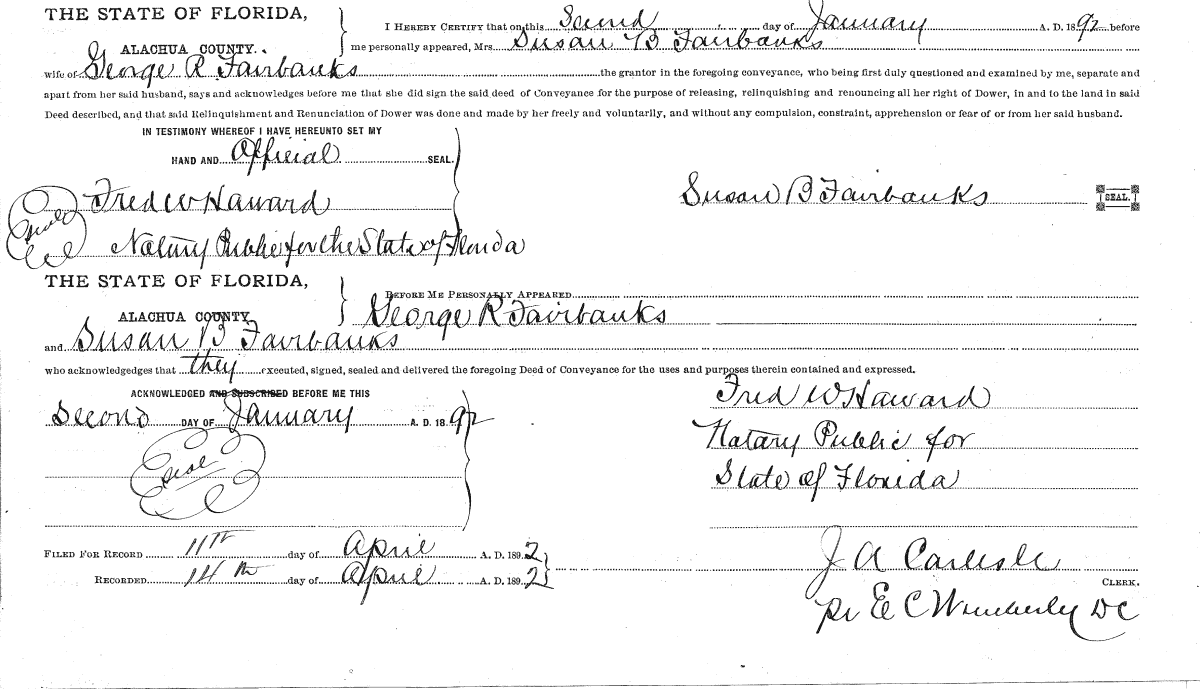 THE STATE OF FLORIDA,
I HEREBY CERTIFY that on this Second day of January A. D. 1892 before
ALACHUA COUNTY.
me personally appeared, Mrs. Susan B Fairbanks
wife of George R Fairbanks the grantor in the foregoing conveyance, who being first duly questioned and examined by me, separate and
apart from her said husband, says and acknowledges before me that she did sign the said deed of Conveyance for the purpose of releasing, relinquishing and renouncing all her right of Dower, in and to the land in said
Deed described, and that said Relinquishment and Renunciation of Dower was done and made by her freely and voluntarily, and without any compulsion, constraint, apprehension or fear of or from her said husband.
IN TESTIMONY WHEREOF I HAVE HEREUNTO SET MY
HAND AND Official SEAL.
Fred W Haward
Susan B Fairbanks SEAL.
Seal
Notary Public for the State of Florida
THE STATE OF FLORIDA,
BEFORE ME PERSONALLY APPEARED
ALACHUA COUNTY George R Fairbanks
and Susan B Fairbanks
who acknowledgedges that they executed, signed, sealed and delivered the foregoing Deed of Conveyance for the uses and purposes therein contained and expressed.
ACKNOWLEDGED AND SUBSCRIBED BEFORE ME THIS
Second DAY OF January A. D. 1892
Fred W Haward
Notary Public for
State of Florida
Seal
FILED FOR RECORD 11th day of April A. D. 1892
RECORDED 14th day of April A. D. 1892
J A Carlisle
CLERK.
pr E C Wimberly DC